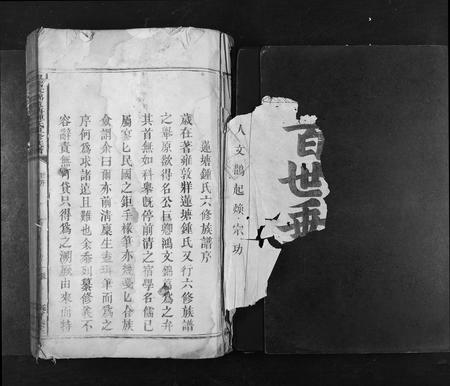 蓮塘鍾氏六修族譜序
歲在著雍敦牂蓮塘鍾氏又行六修族譜
之舉原欲得名公巨卿鴻文錦篇為之弁
其首無如科舉既停前清之宿學名儒已
屬寥民國之鉅手樣筆亦合族
僉謂余曰爾亦前清廩生筆而為之
序何為求諸遠且難也余忝列纂修義不
容辭責無可貸只得為之溯厥由來而特
人文鵲起煥宗功
百世